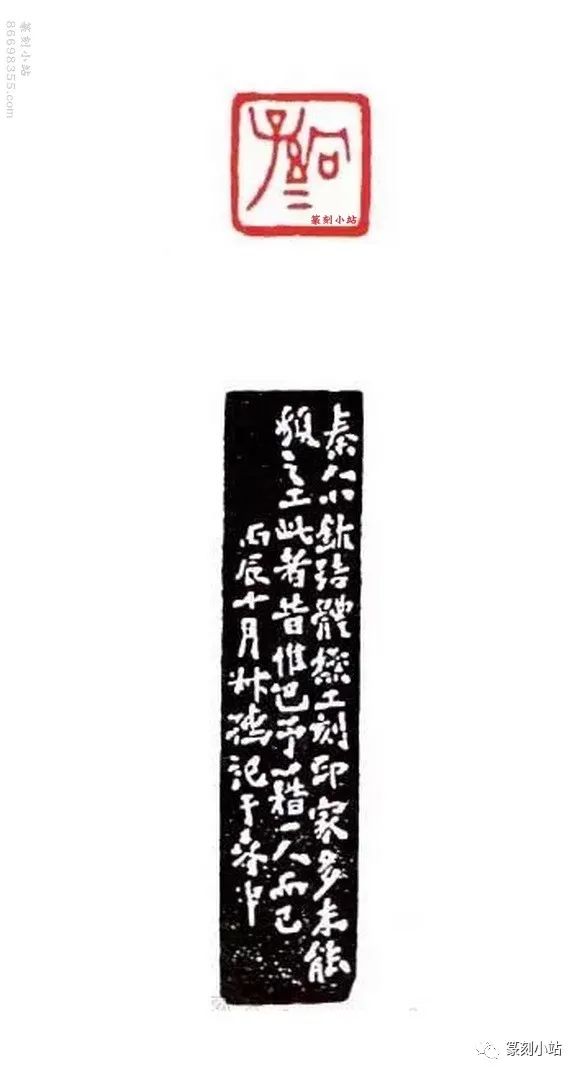 篆刻小站
86698355.com
篆刻小站
秦人小鉥體極工刻印家多未能
之工此者昔惟巴予藉一人而已
丙辰十月叔孺記于春申
篆刻小站